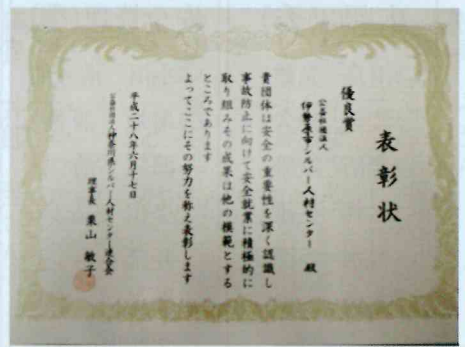 表彰状
優良賞
公益社団法人
伊勢原市シルバー人材センター 殿
貴団体は安全の重要性を深く認識し
事故防止に向けて安全就業に積極的に
取り組みその成果は他の模範とする
ところであります
よってここにその努力を称え表彰します
平成二十八年六月十七日
公益社団法人神奈川県シルバー人材センター連合会
理事長 栗山 敏子